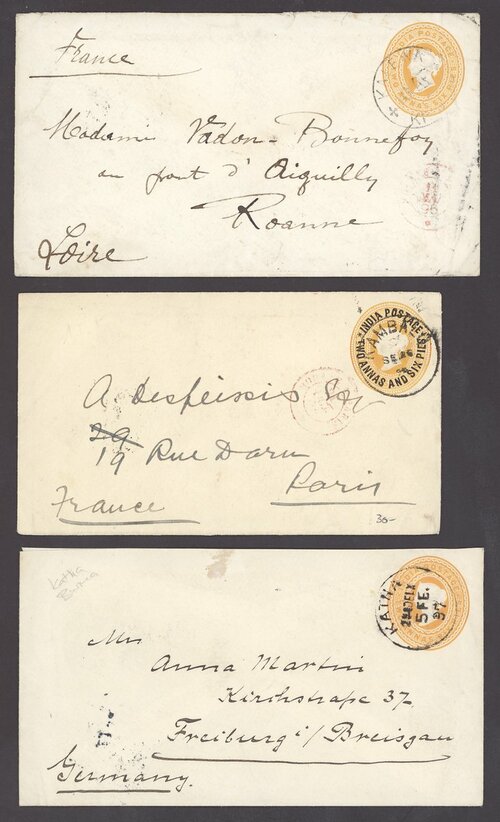 France
INDIA POSTAGE
Madame Vadon-Bonnefoy
au pont d'Aiguilly
Roanne
Loire
INDIA POSTAGE
TWO ANNAS AND SIX PIES
SE
A. Despeissis Esq
29
19 Rue Daru
Paris
France
30-
Katha
Burma
KATHA
5 FE.
97
Mrs
Anna Martin
Kirchstraße 37
Freiburg i/Breisgau
Germany.